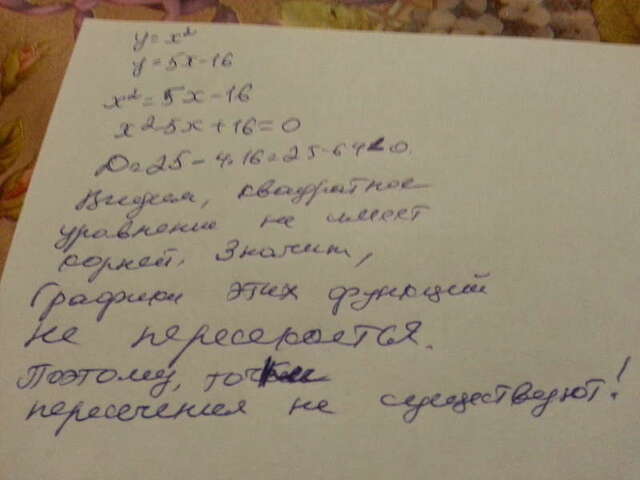 y = x²
y = 5x - 16
x² = 5x - 16
x² - 5x + 16 = 0
D = 25 - 4·16 = 25 - 64 < 0.
Видем, квадратное
уравнение не имеет
корней. Значит,
Графики этих функций
не пересекается.
Поэтому, точки
пересечения не существуют!